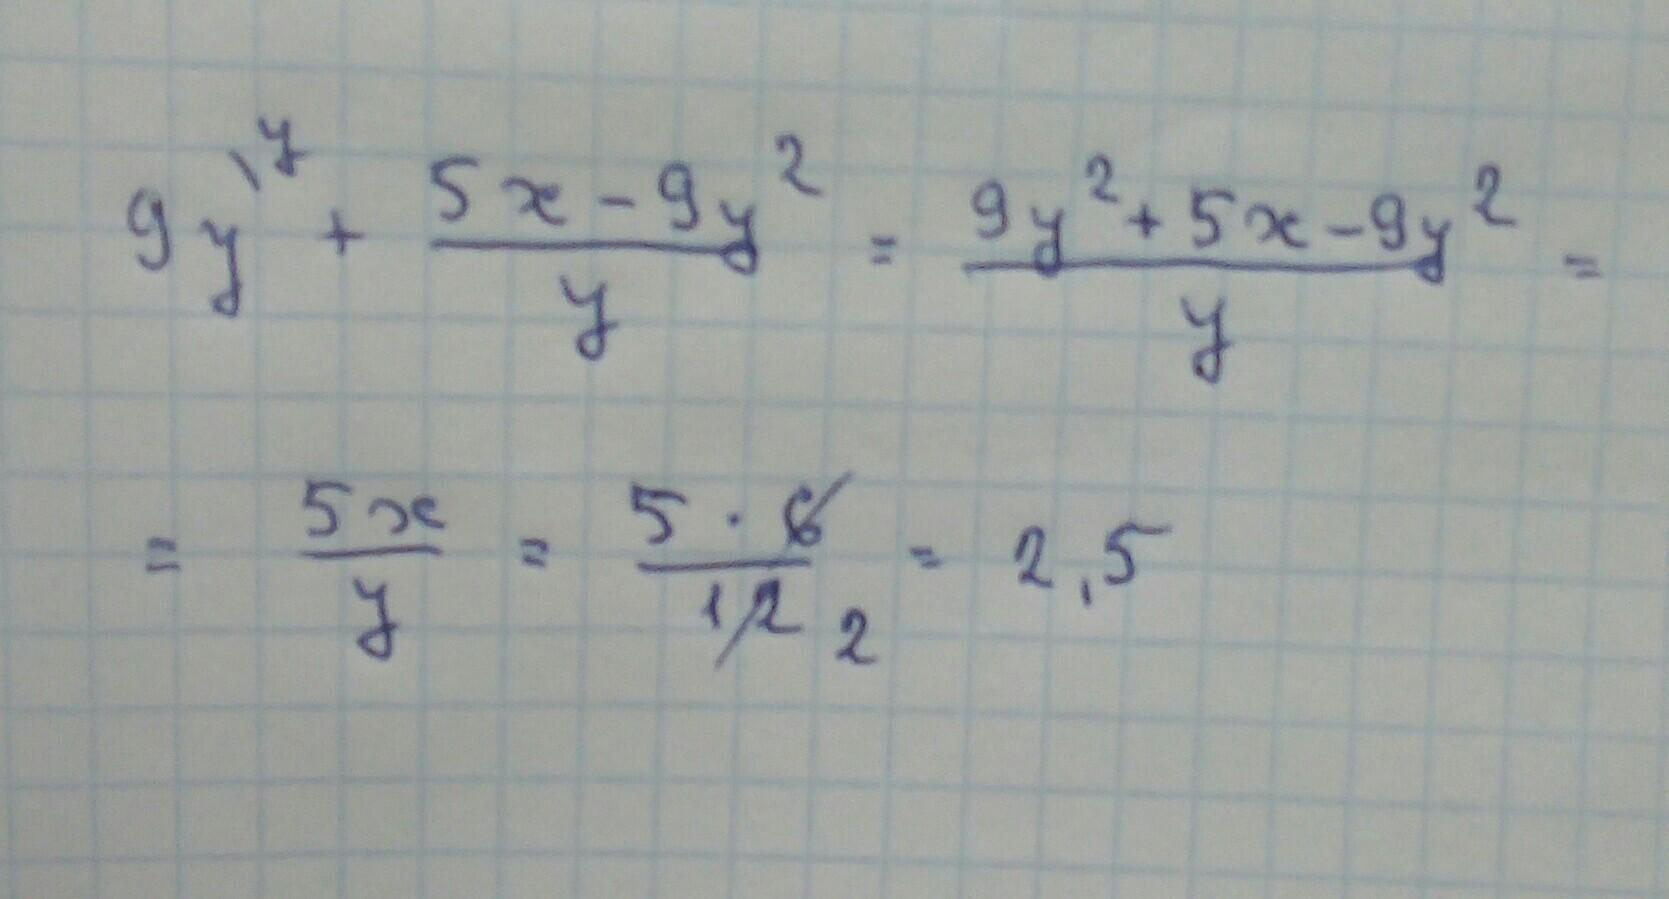 9y\y + (5x - 9y²)/y = (9y² + 5x - 9y²)/y =
= 5x/y = (5 · 6)/(12 2) = 2,5